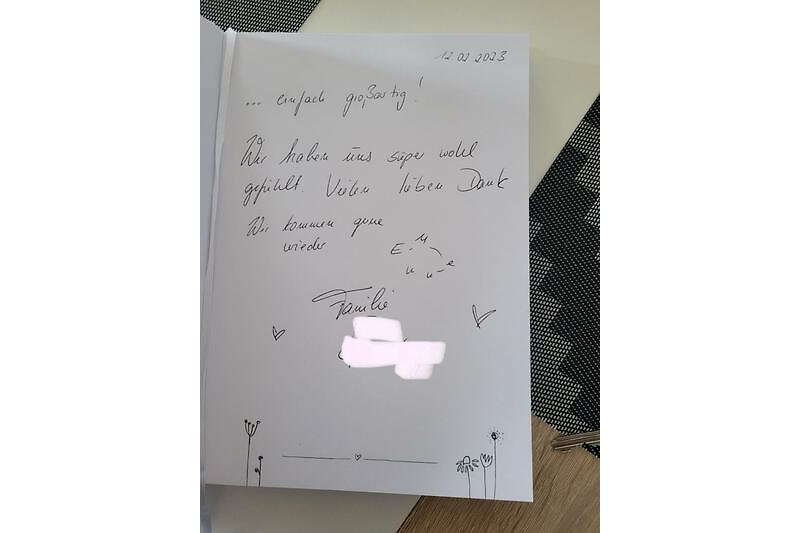 12 02 2023
... einfach großartig!
Wir haben uns super wohl
gefühlt. Vielen lieben Dank
Wir kommen gerne
wieder
Familie